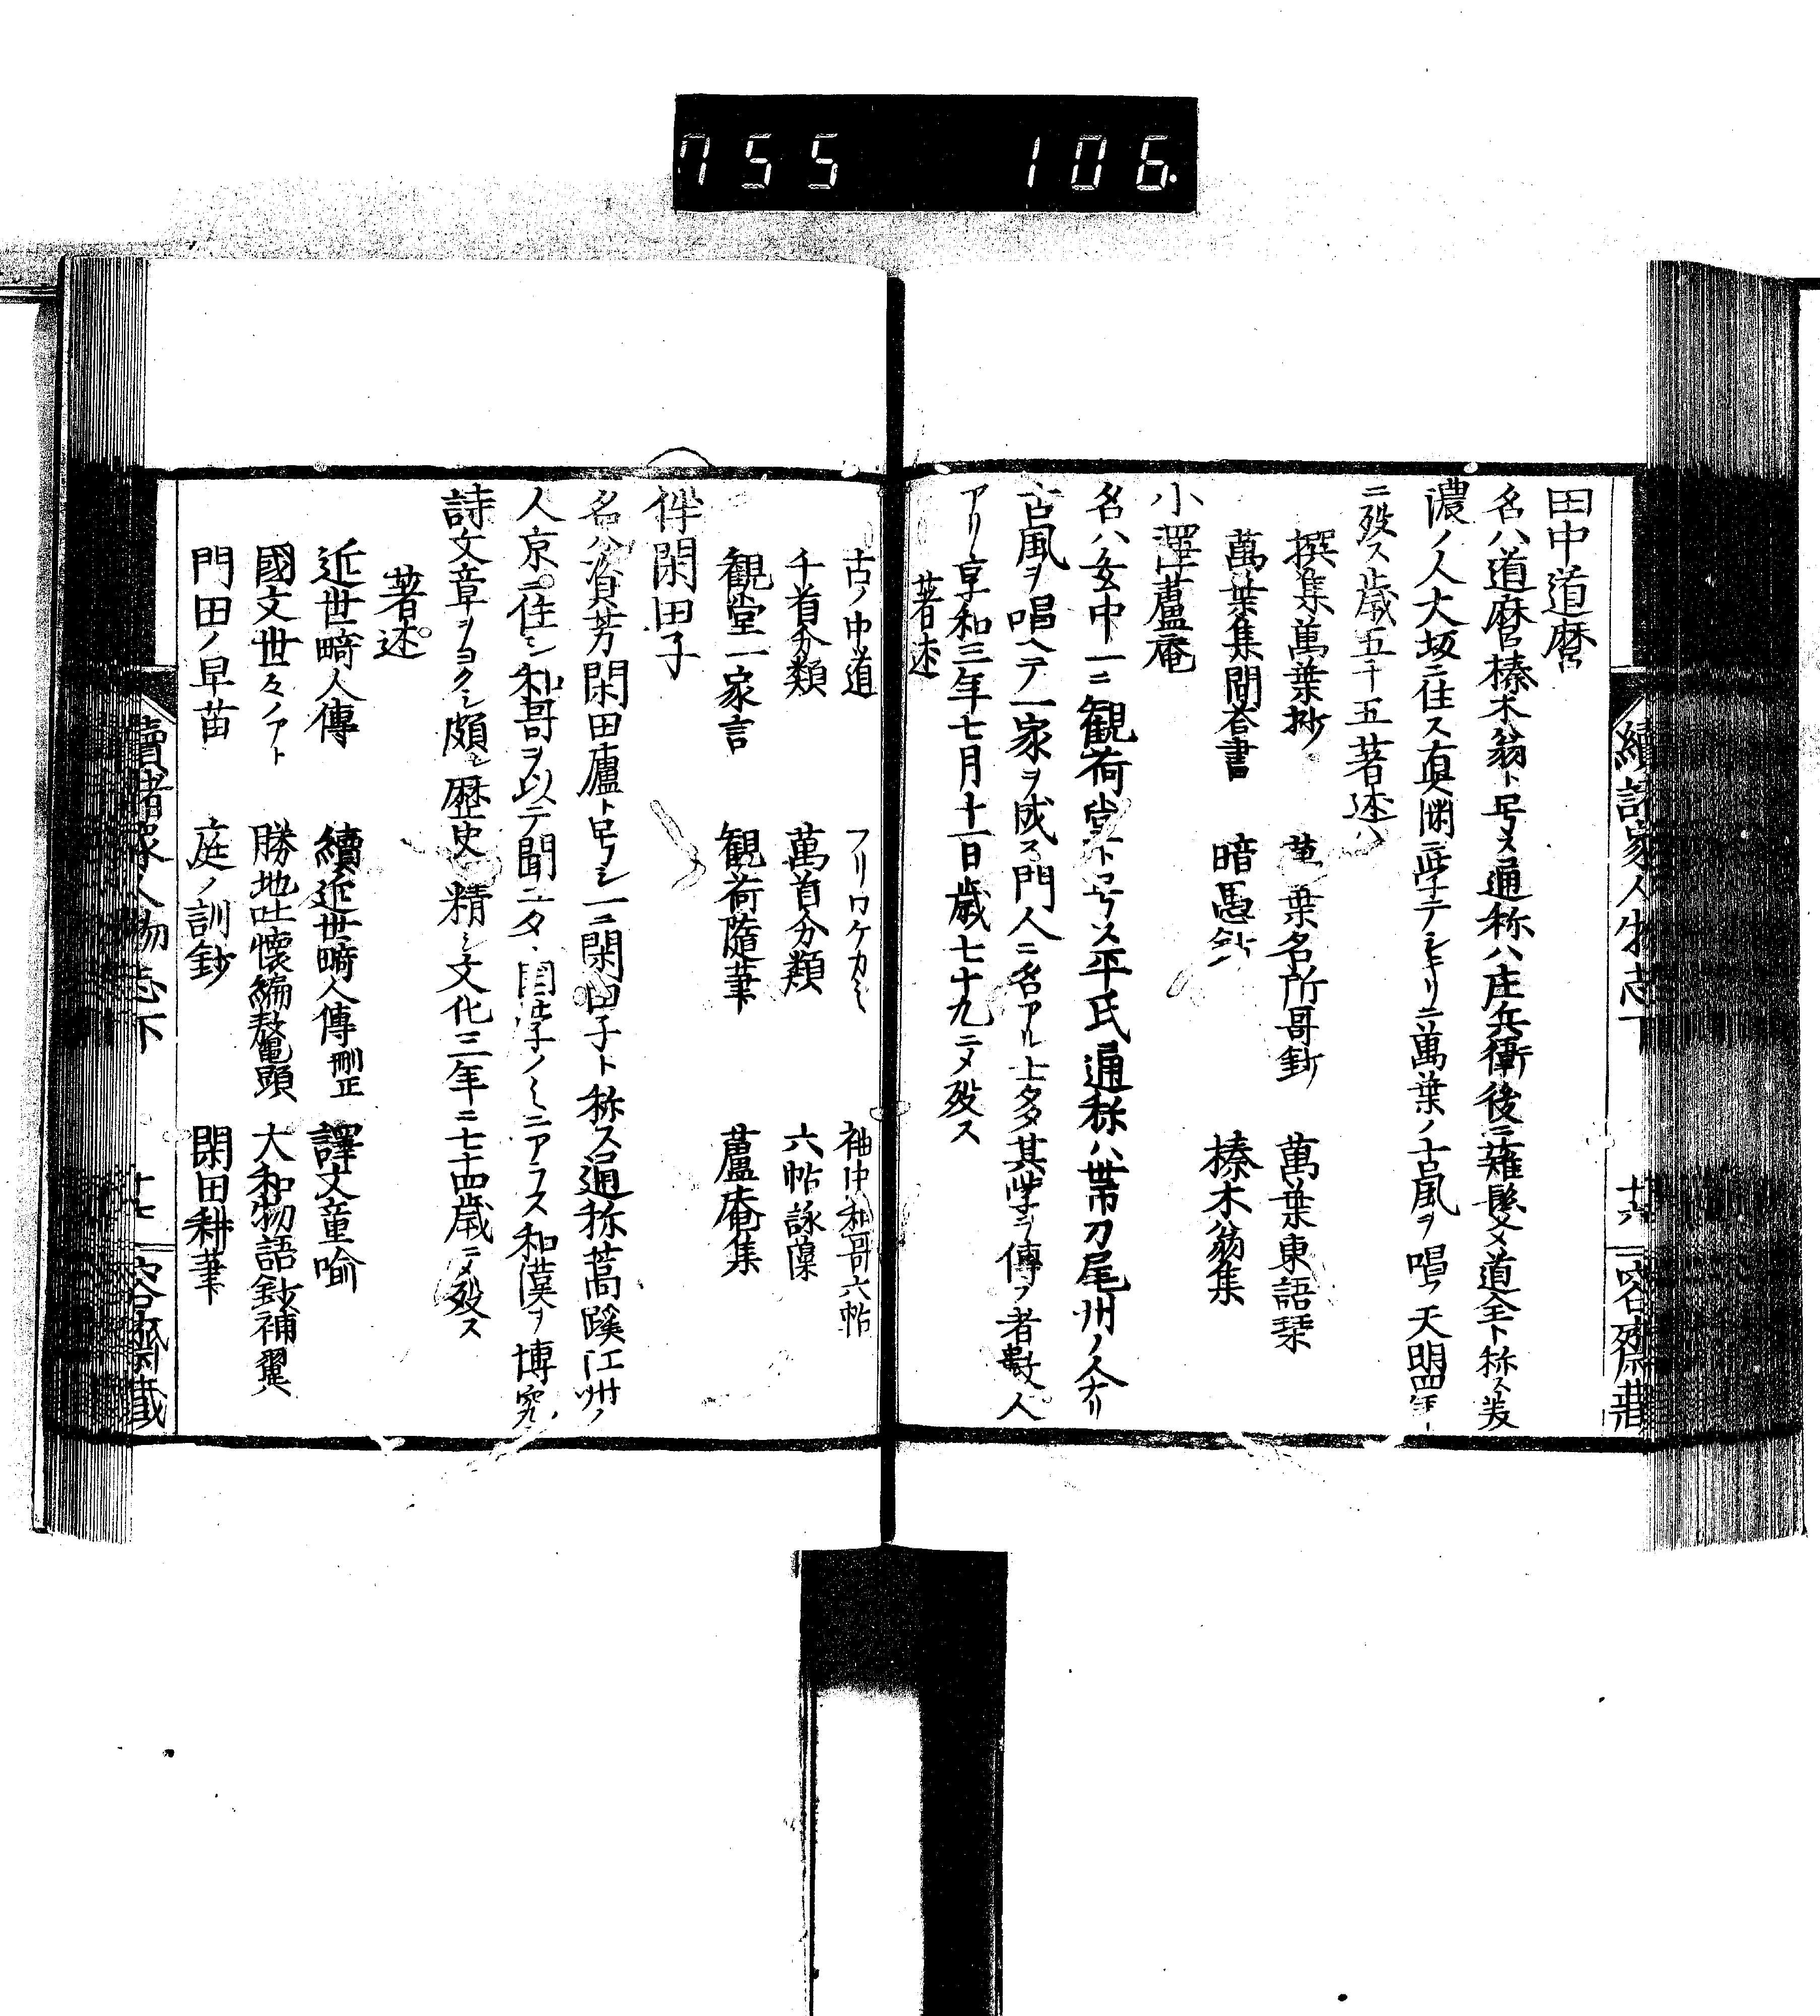 755 106
續諸家人物志下 十六 容齋藏
田中道麿
名ハ道麿榛木翁ト号メ通称ハ庄兵衛後ニ薙髮メ道全ト称ス美
濃ノ人大坂ニ住ス真渕ニ学テシキリニ萬葉ノ古風ヲ唱フ天明四年
ニ殁ス歳五十五著述ハ
撰集萬葉抄 萬葉名所哥鈔 萬葉東語栞
萬葉集問荅書 暗愚鈔 榛木翁集
小澤蘆庵
名ハ玄中一ニ観荷堂ト号ス平氏通称ハ帯刀尾州ノ人ナリ
古風ヲ唱ヘテ一家ヲ成ス門人ニ名アル士多タ其学ヲ傳フ者數人
アリ享和三年七月十一日歳七十九ニメ殁ス
著述
古ノ中道 フリワケカミ 袖中和哥六帖
千首分類 萬首分類 六帖詠藁
觀堂一家言 観荷隨筆 蘆庵集
伴閑田子
名ハ資芳閑田廬ト号シ一ニ閑田子ト称ス通称蒿蹊江州ノ
人京ニ住シ和哥ヲ以テ聞ユタ国学ノミニアラス和漢ヲ博究
詩文章ヲヨクシ頗ル歴史ニ精シ文化三年ニ七十四歳ニメ殁ス
著述
近世畸人傳 續近世畸人傳刪正 譯文童喩
國文世々ノアト 勝地吐懐編鼇頭 大和物語鈔補翼
門田ノ早苗 庭ノ訓鈔 閑田耕筆
續諸家人物志下 十七 容齋藏